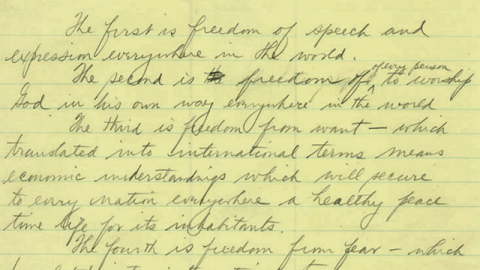 The first is freedom of speech and
expression everywhere in the world.
every person
The second is freedom of to worship
God in his own way everywhere in the world
The third is freedom from want — which
translated into international terms means
economic understandings which will secure
to every nation everywhere a healthy peace
time life for its inhabitants.
The fourth is freedom from fear — which